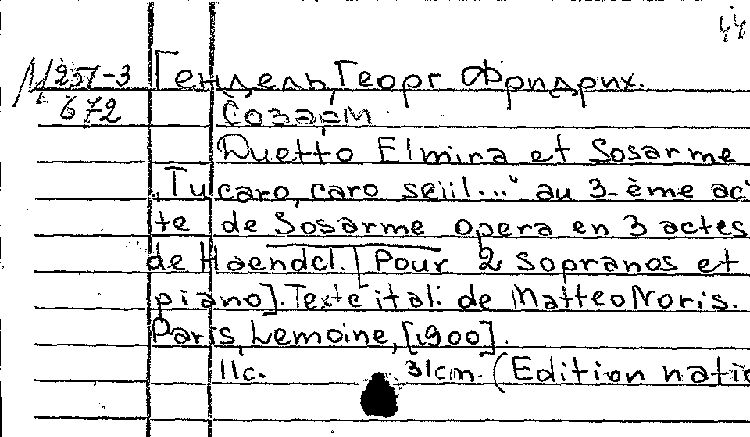 44
М 251-3 Гендель, Георг Фридрих.
672 Созарм.
Duetto Elmira et Sosarme
„Tu caro, caro seiil..." au 3-ème ac
te de Sosarme opera en 3 actes
de Haendel. [Pour 2 sopranos et
piano]. Texte ital. de Matteo Noris.
Paris, Lemoine, [1900].
11с. 31cm. (Edition natio